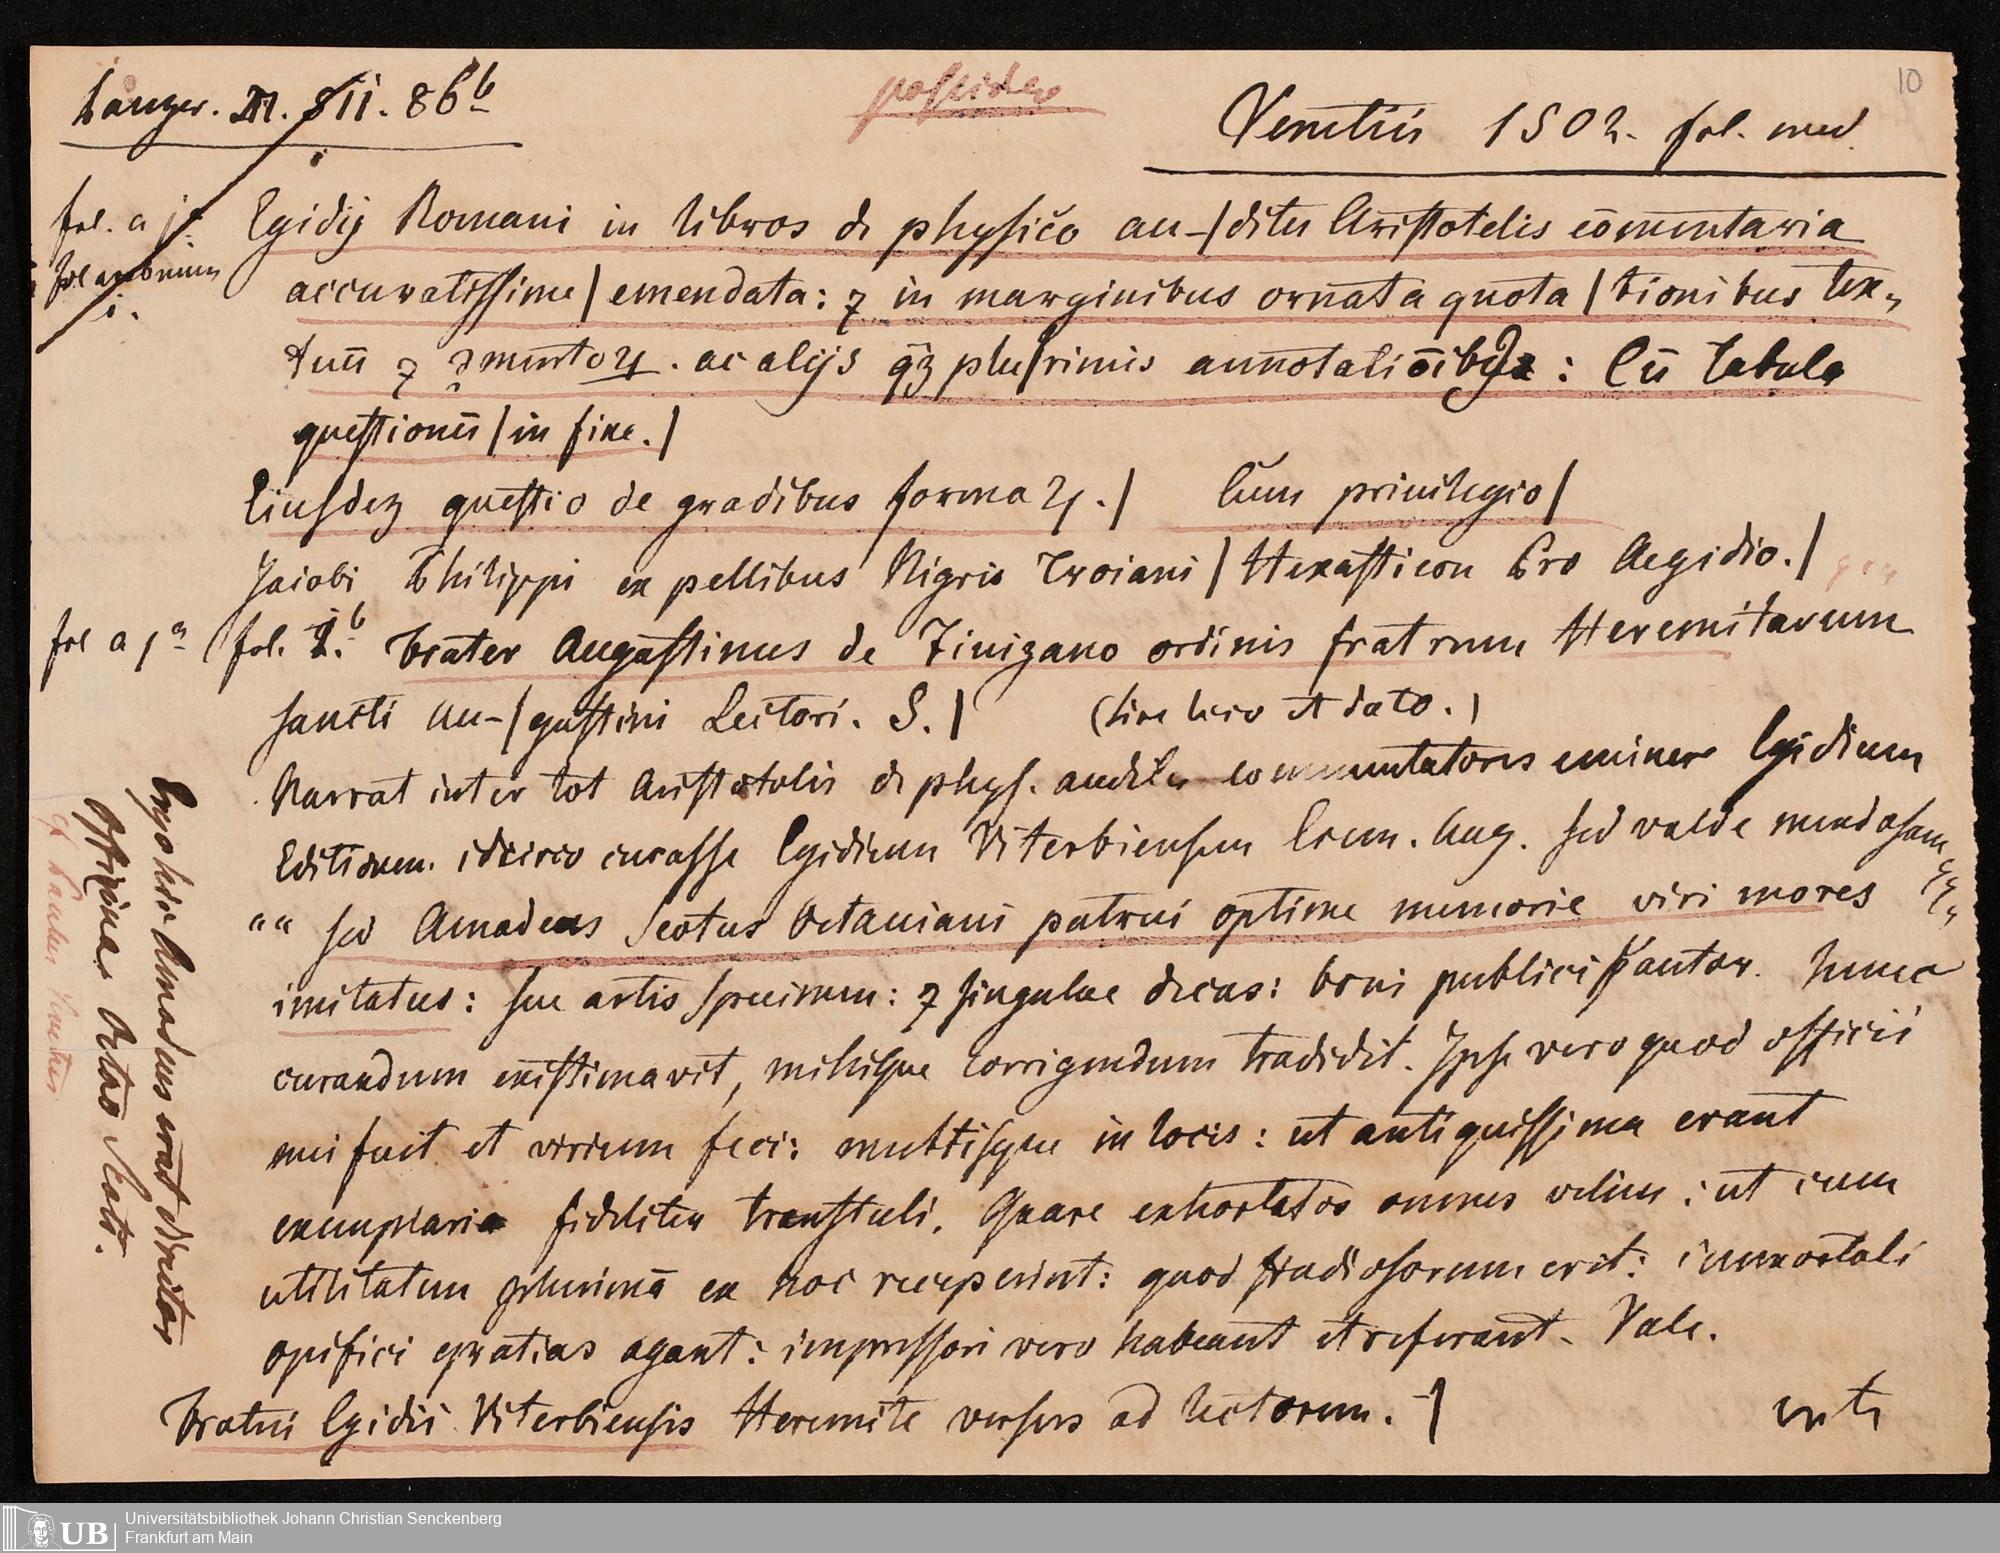 Panzer. VIII. 511. 86b
possideo
Venetiis 1502. fol. med.
10
fol. a j.
Egidij Romani in libros de physico au-/ditu Aristotelis cōmentaria
accuratissime / emendata: ⁊ in marginibus ornata quota / tionibus tex-
tuū ⁊ ꝯmentoꝝ. ac alijs qꝫ plu/rimis annotatiōibꝰ: Cū tabula
questionū / in fine. /
Eiusdeꝫ questio de gradibus formaꝝ. / Cum priuilegio /
Jacobi Philippi ex pellibus Nigris Troiani / Hexasticon Pro Aegidio. /
fol a 1a (fol. 1.b Frater Augustinus de Fiuizano ordinis fratrum Heremitarum
sancti Au-/gustini Lectori. S. / (sine loco et dato.)
Narrat inter tot Aristotelis de phys. auditu commentatores eminere Egidium
Editionem. idcirco curasse Egidium Viterbiensem Erem. Aug. sed valde mendosam
"" sed Amadeus Scotus Octauiani patrui optime memorie viri mores
imitatus: sue artis specimen: ⁊ singulare decus: boni publici fautor. hunc
curandum existimavit, mihique corrigendum tradidit. Ipse vero quod officii
mei fuit et virium feci: multisque in locis: ut antiquissima erant
exemplaria fideliter transtuli. Quare exhortatos omnes velim: ut cum
utilitatem plurimā ex hoc receperint: quod studiosorum erit: immortali
opifici gratias agant: impressori vero habeant et referant. Vale.
Fratris Egidii Viterbiensis Heremite versus ad lectorem. -/
verte
Ergo hic Amadeus erat director
officinae Octav. Scoti.
Universitätsbibliothek Johann Christian Senckenberg
UB Frankfurt am Main